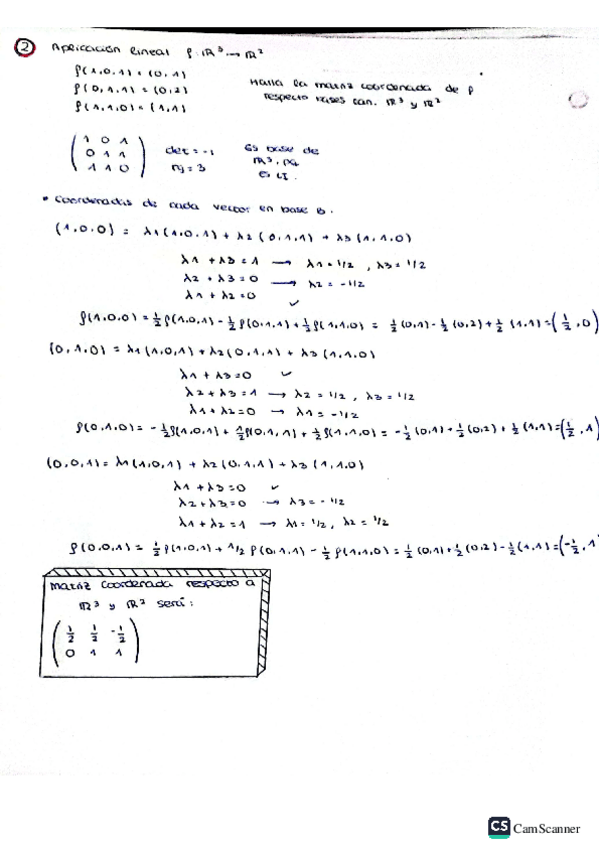 ② Aplicación lineal f: ℝ³ → ℝ²
f(1,0,1) = (0,1)
f(0,1,1) = (0,2)
f(1,1,0) = (1,1)
Halla la matriz coordenada de f
respecto bases can. ℝ³ y ℝ²
1 0 1
0 1 1
1 1 0
det = -1
rg = 3
Es base de
ℝ³, pq
es LI.
• Coordenadas de cada vector en base B.
(1,0,0) = λ1(1,0,1) + λ2(0,1,1) + λ3(1,1,0)
λ1 + λ3 = 1 → λ1 = 1/2, λ3 = 1/2
λ2 + λ3 = 0 → λ2 = -1/2
λ1 + λ2 = 0 ✓
f(1,0,0) = 1/2 f(1,0,1) - 1/2 f(0,1,1) + 1/2 f(1,1,0) = 1/2 (0,1) - 1/2 (0,2) + 1/2 (1,1) = (1/2, 0)
(0,1,0) = λ1(1,0,1) + λ2(0,1,1) + λ3(1,1,0)
λ1 + λ3 = 0 ✓
λ2 + λ3 = 1 → λ2 = 1/2, λ3 = 1/2
λ1 + λ2 = 0 → λ1 = -1/2
f(0,1,0) = -1/2 f(1,0,1) + 1/2 f(0,1,1) + 1/2 f(1,1,0) = -1/2 (0,1) + 1/2 (0,2) + 1/2 (1,1) = (1/2, 1
(0,0,1) = λ1(1,0,1) + λ2(0,1,1) + λ3(1,1,0)
λ1 + λ3 = 0 ✓
λ2 + λ3 = 0 → λ3 = -1/2
λ1 + λ2 = 1 → λ1 = 1/2, λ2 = 1/2
f(0,0,1) = 1/2 f(1,0,1) + 1/2 f(0,1,1) - 1/2 f(1,1,0) = 1/2 (0,1) + 1/2 (0,2) - 1/2 (1,1) = (-1/2, 1
Matriz coordenada respecto a
ℝ³ y ℝ² será:
1/2 1/2 -1/2
0 1 1
CS CamScanner